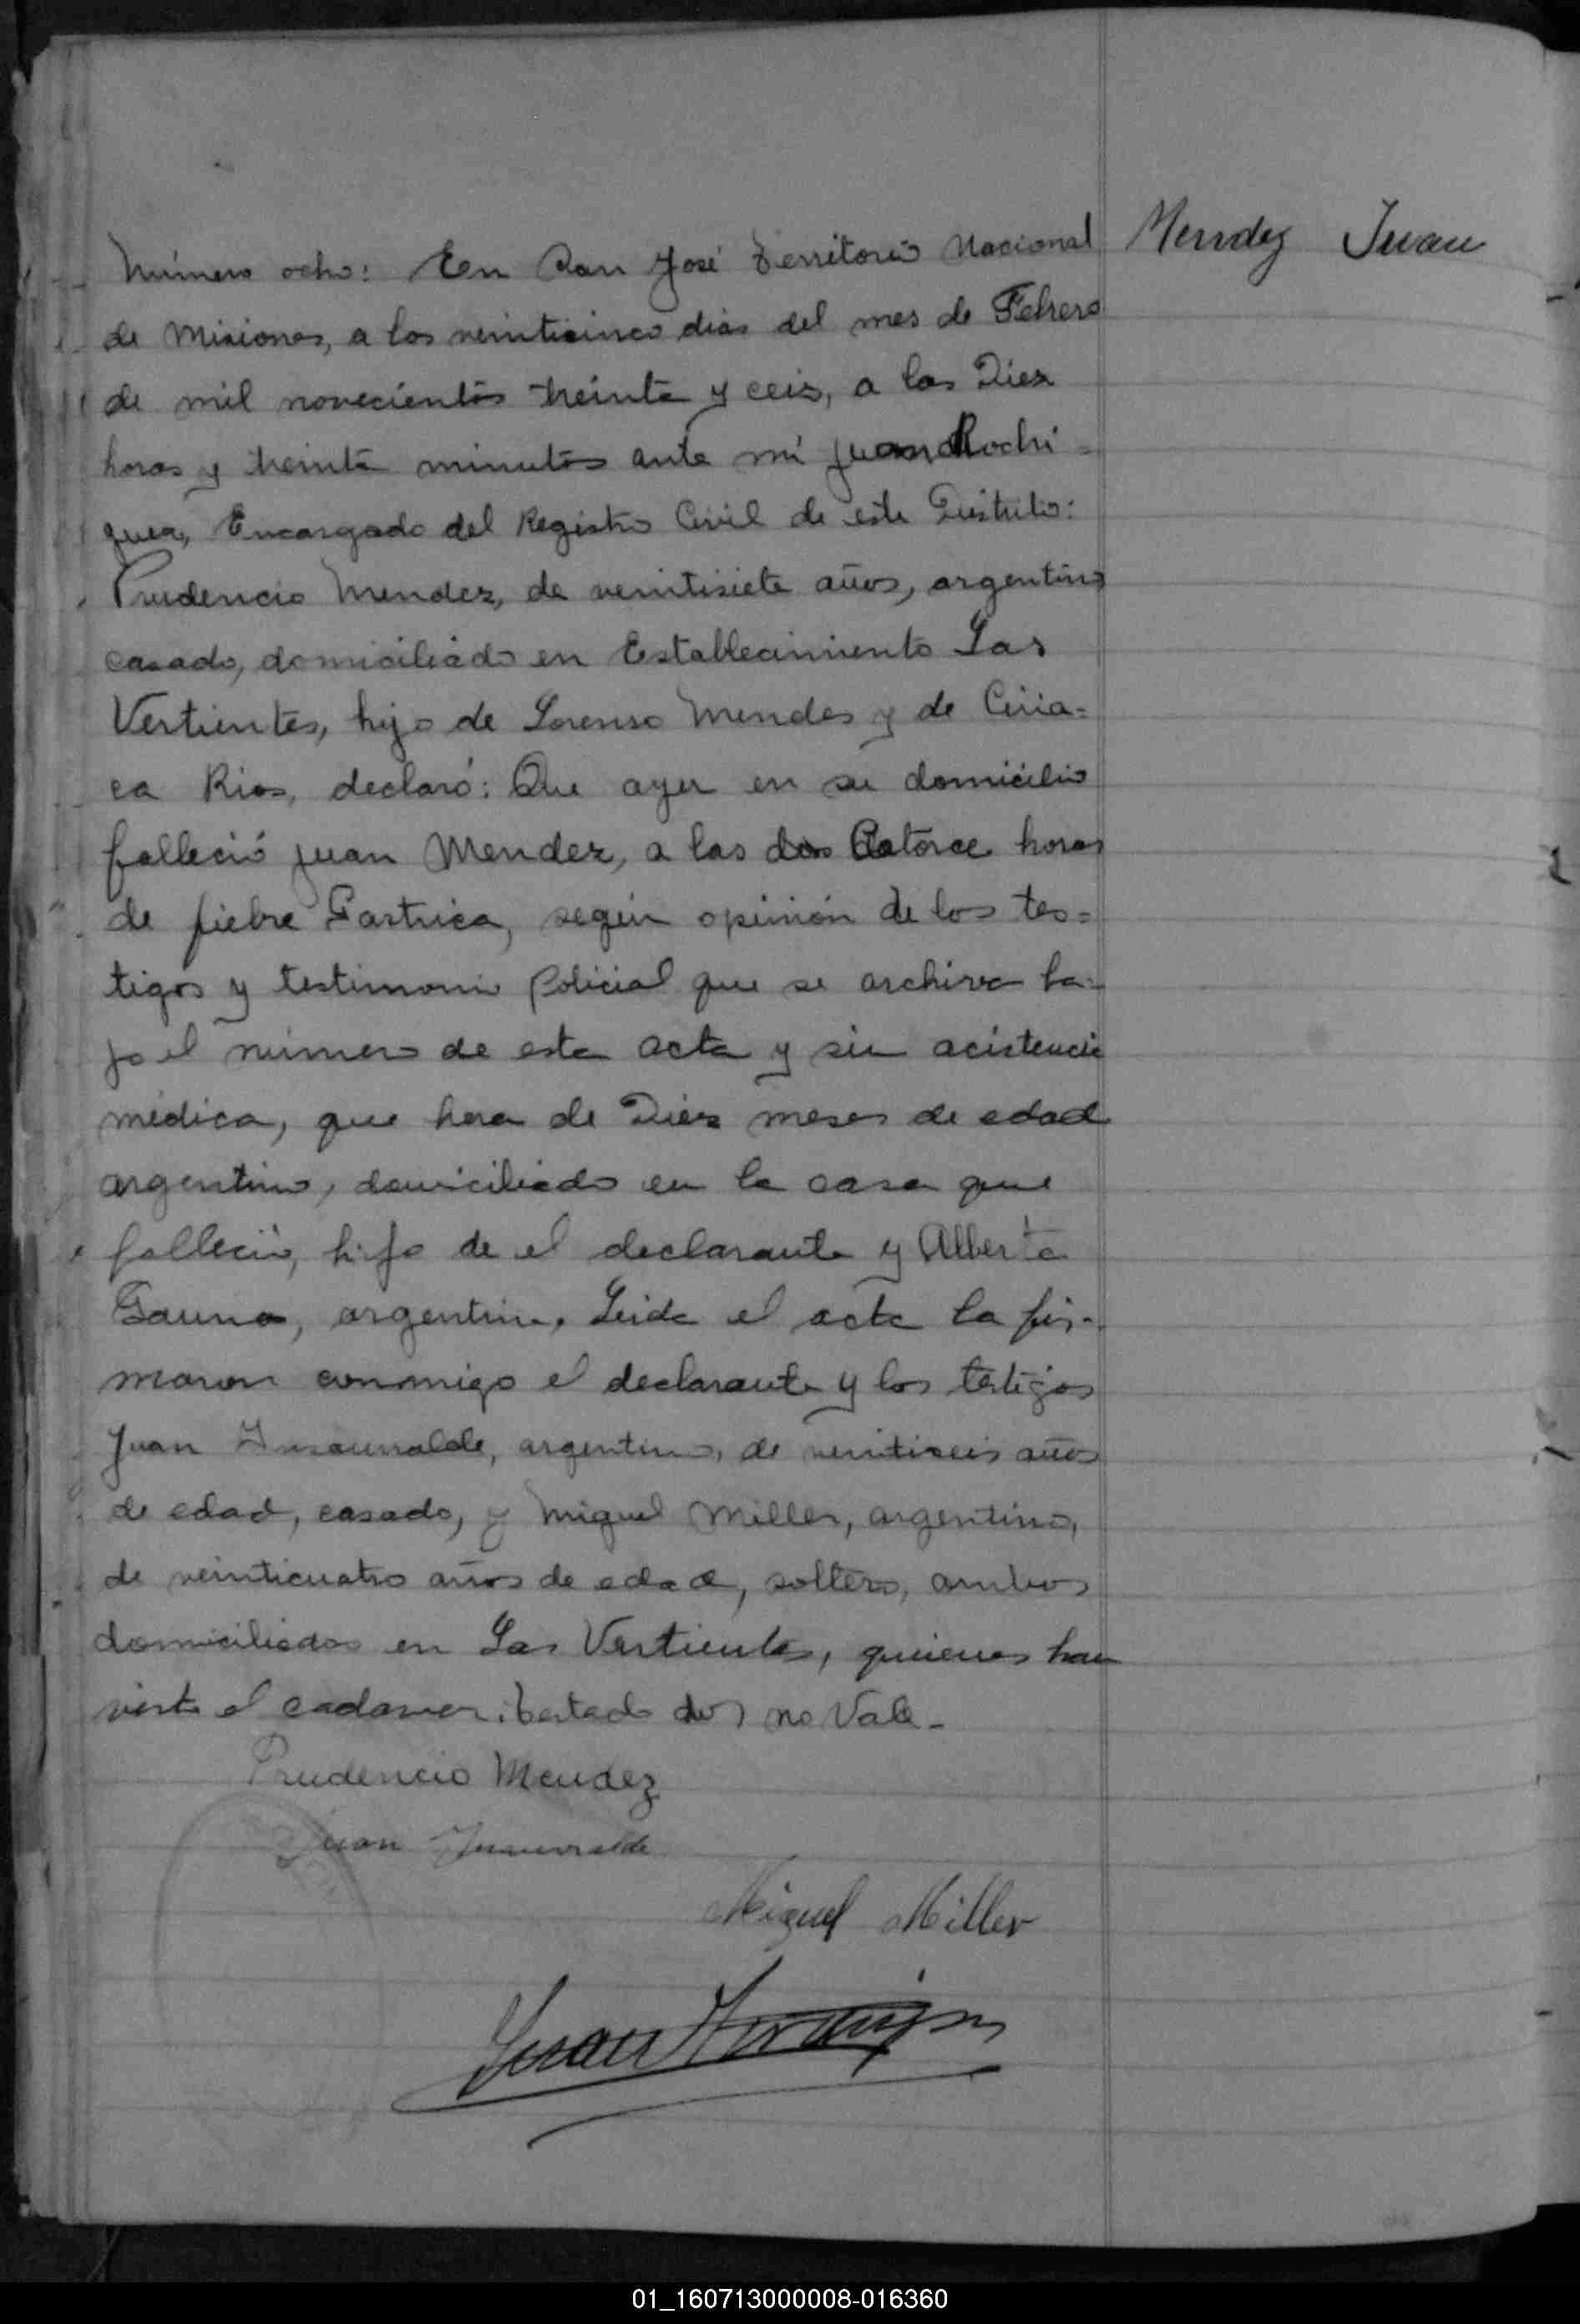 Mendez Juan
Número ocho: En San José Territorio Nacional
de Misiones, a los veinticinco dias del mes de Febrero
de mil novecientos treinta y ceis, a las Diez
horas y treinta minutos ante mi Juan Rochi=
guez, Encargado del Registro Civil de este Distrito:
Prudencio Mendez, de veintisiete años, argentino
casado, domiciliado en Establecimiento Las
Vertientes, hijo de Lorenso Mendes y de Ciria=
ca Rios, declaró: Que ayer en su domicilio
falleció Juan Mendez, a las dos Catorce horas
de fiebre Gastrica, según opinión de los tes=
tigos y testimonio Policial que se archiva ba-
jo el número de esta acta y sin acistencia
médica, que hera de Diez meses de edad
argentino, domiciliado en la casa que
falleció, hijo de el declarante y Alberta
Gauna, argentina. Leida el acta la fir-
maron conmigo el declarante y los testigos
Juan Insaurralde, argentino, de veintiseis años
de edad, casado, y Miguel Miller, argentino,
de veinticuatro años de edad, soltero, ambos
domiciliados en Las Vertientes, quienes han
visto el cadaver. testado dos no Vale-
Prudencio Mendez
Juan Insaurralde
Miguel Miller
Juan
01_160713000008-016360